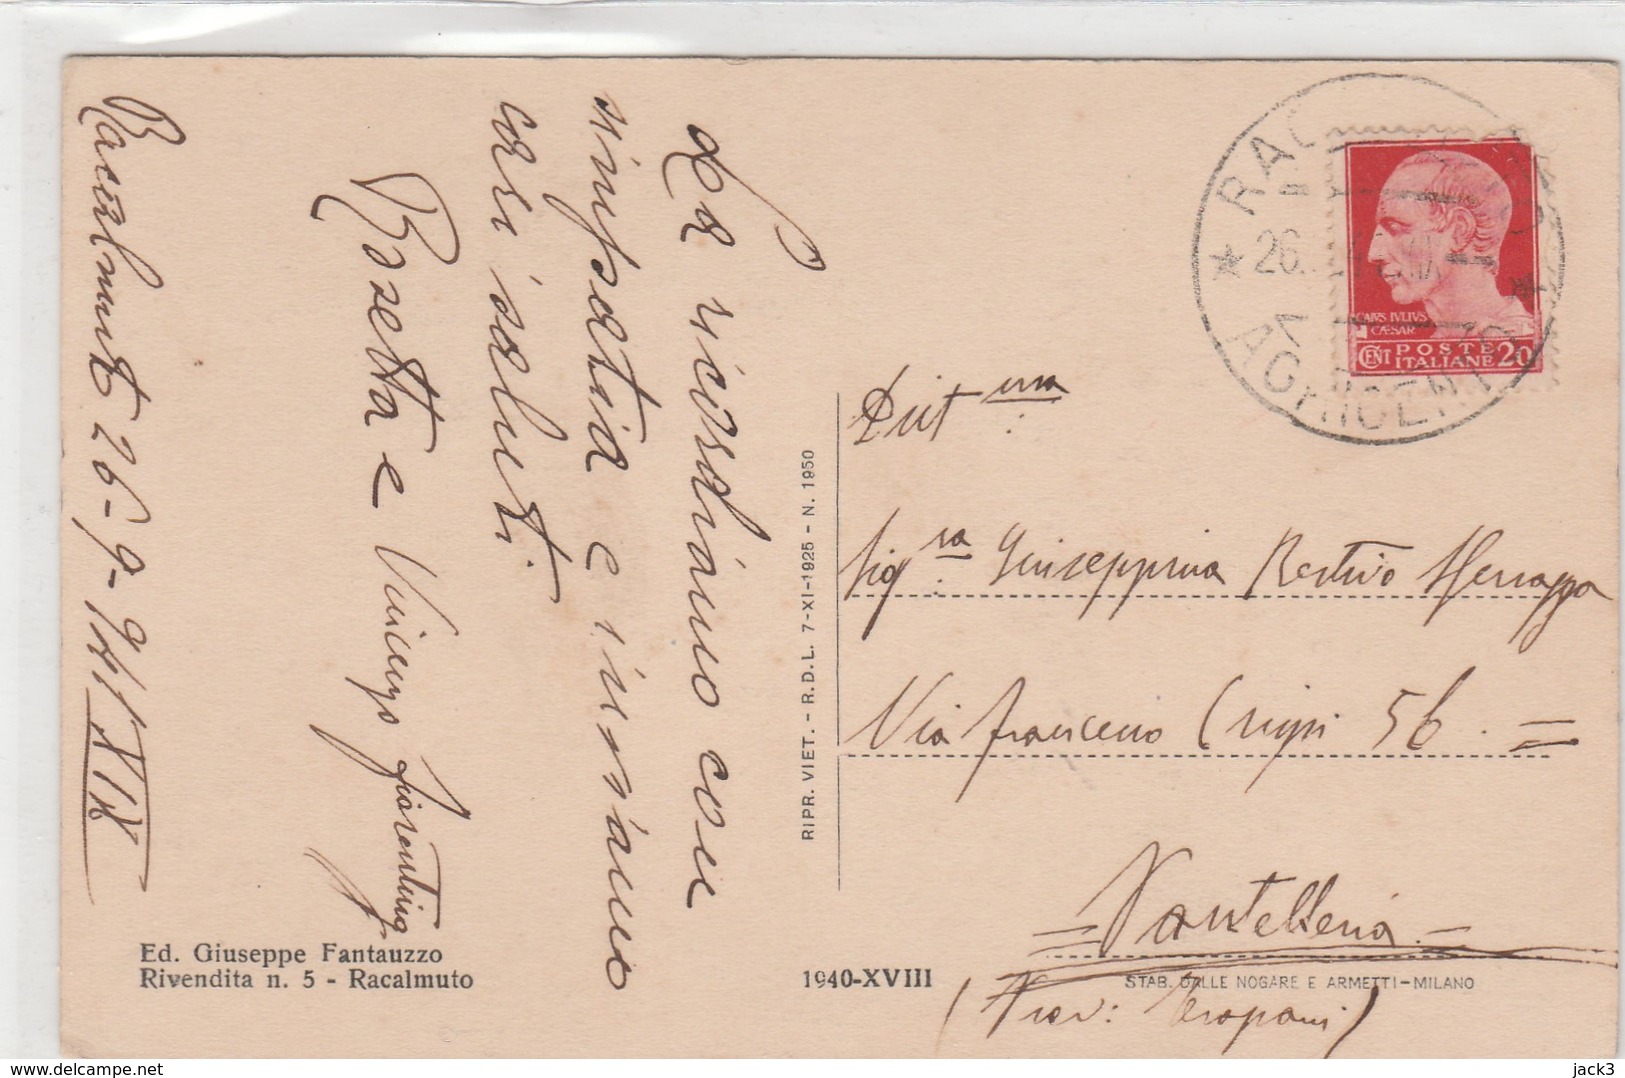 Racalmuto 26-9-941 XIX
La ricordiamo con
simpatia e inviamo
cari saluti.
Rosetta e Vincenzo Fiorentino
Ed. Giuseppe Fantauzzo
Rivendita n. 5 - Racalmuto
RIPR. VIET. - R.D.L. 7-XI-1925 - N. 1950
1940-XVIII
STAB. DALLE NOGARE E ARMETTI-MILANO
RAC
26.
AGRIGENTO
CAIVS IVLIVS
CÆSAR
CENT POSTE ITALIANE 20
Sig.ra Giuseppina Restivo
Via Francesco Crispi 56. =
= Pantelleria =
(Prov: Trapani)
delcampe.net
jack3